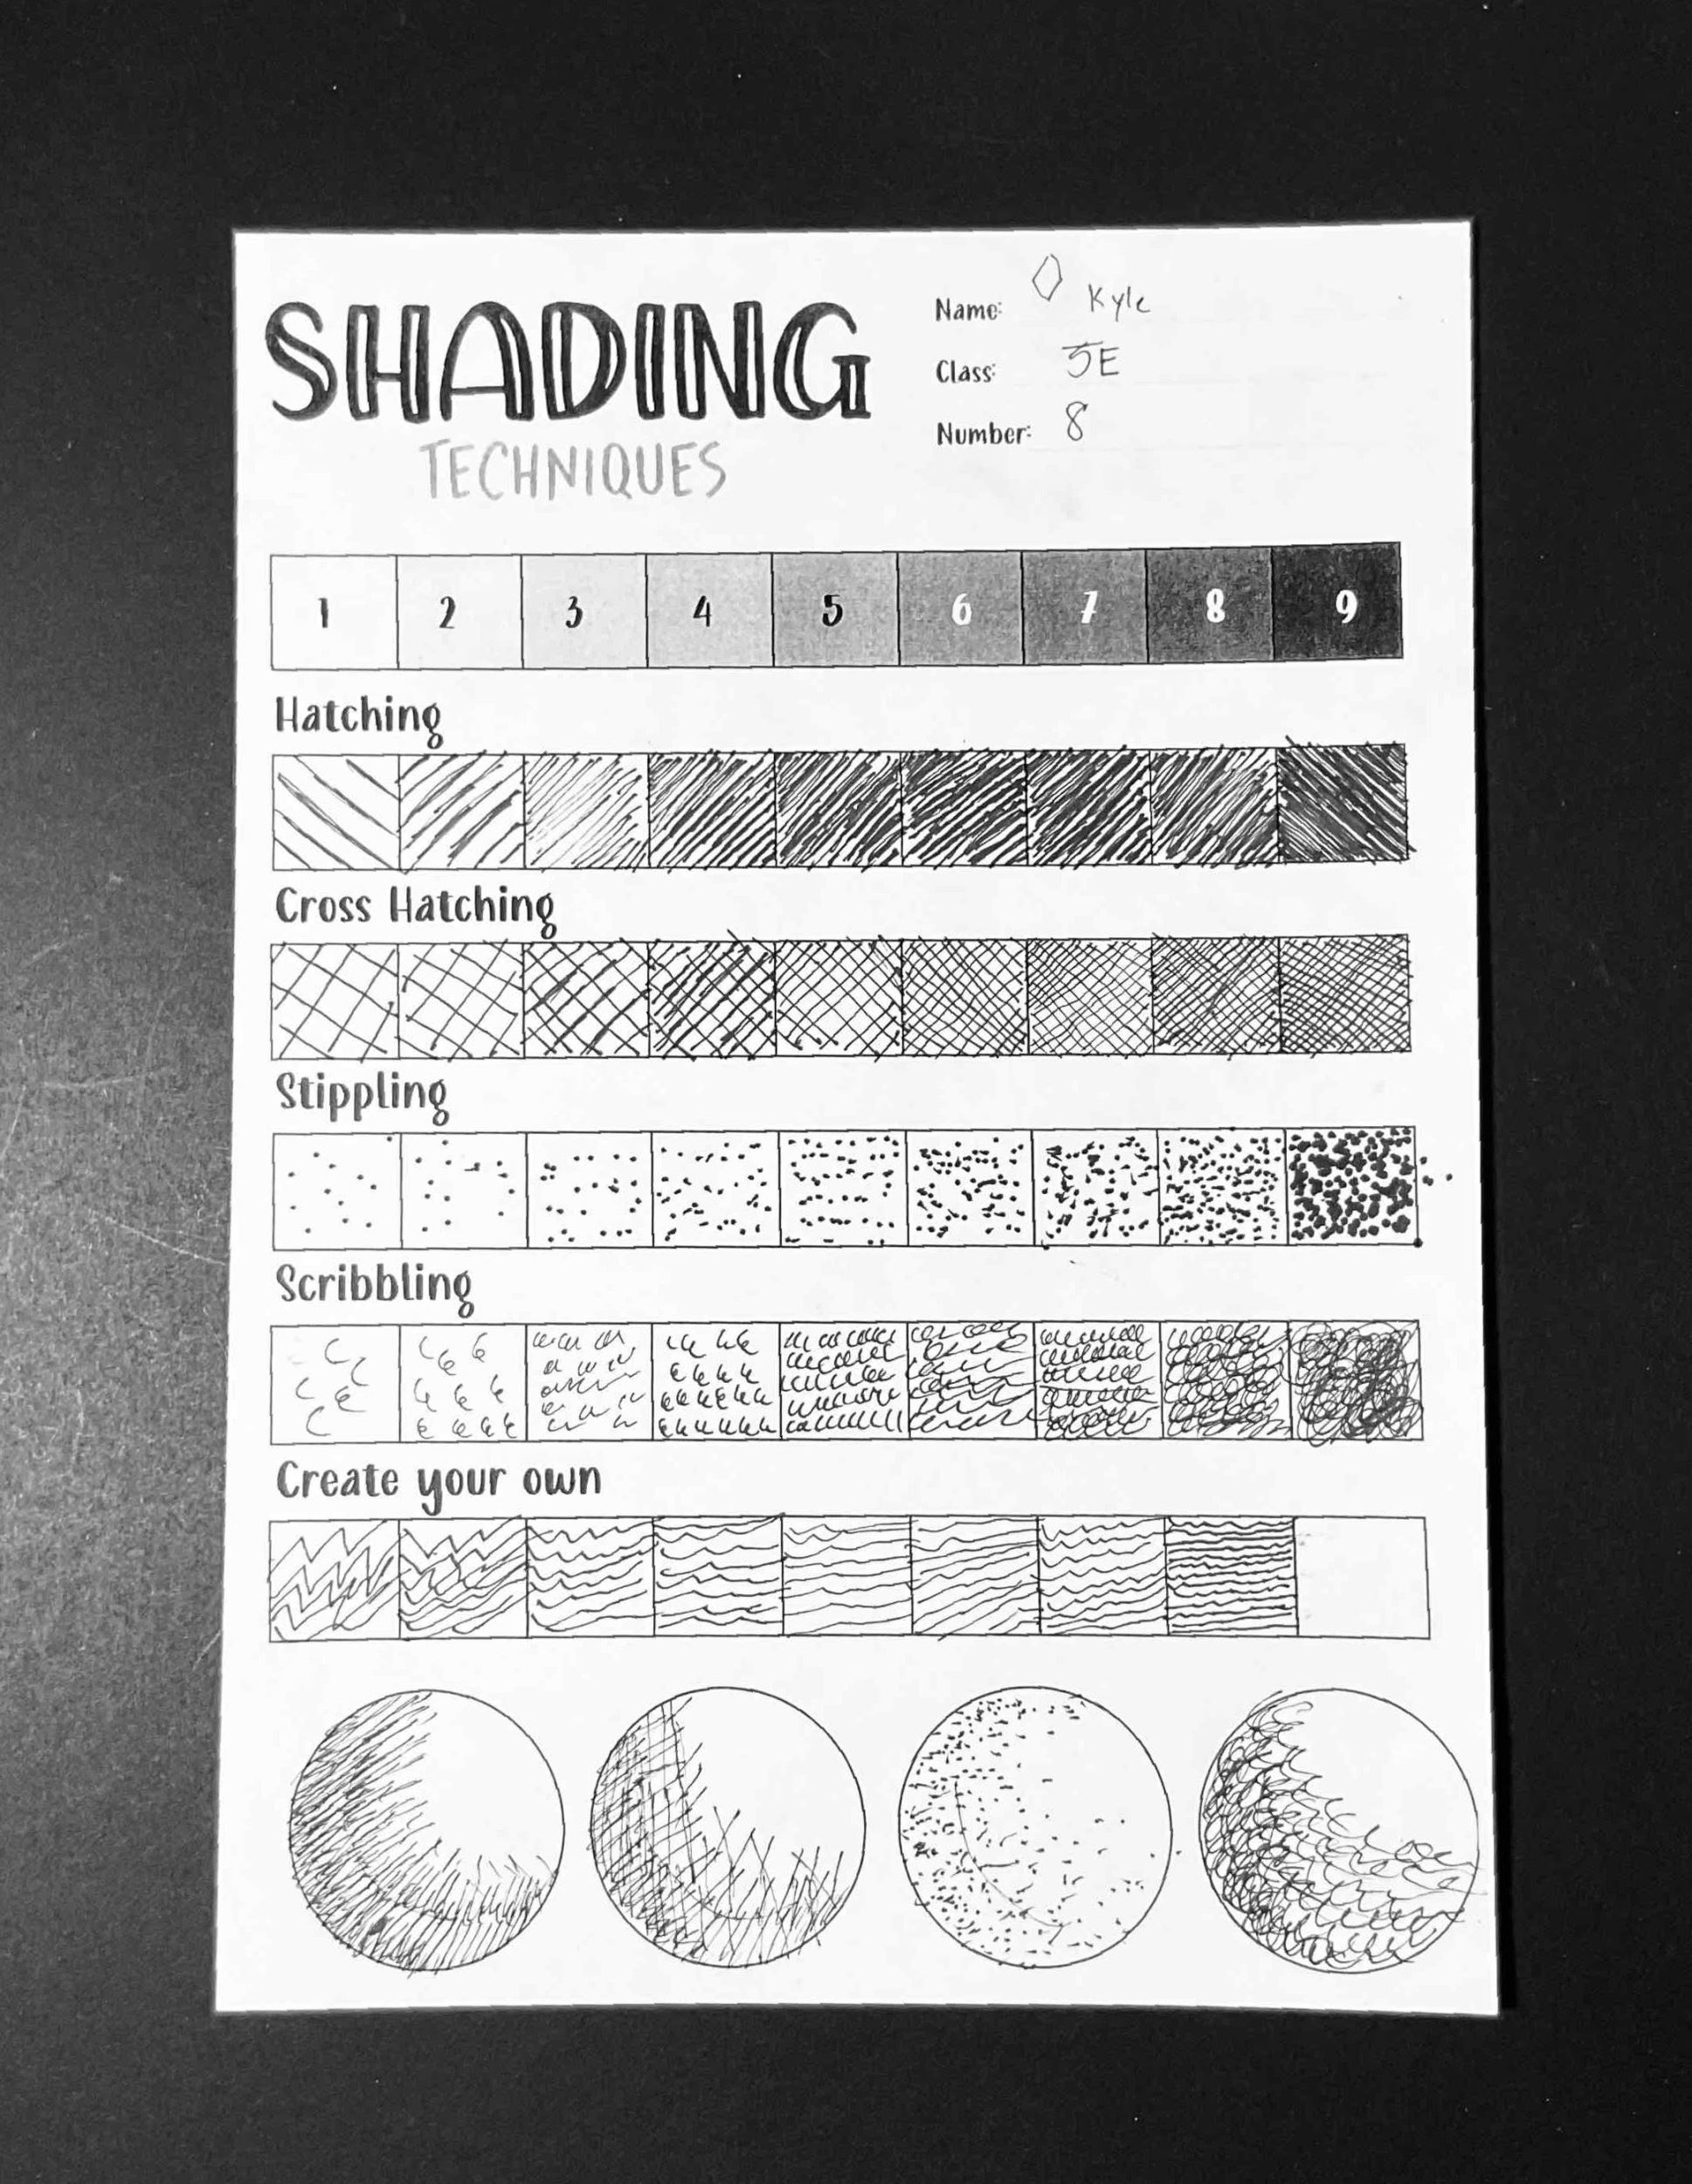 SHADING
TECHNIQUES
Name: Kyle
Class: 5E
Number: 8
1 2 3 4 5 6 7 8 9
Hatching
Cross Hatching
Stippling
Scribbling
Create your own